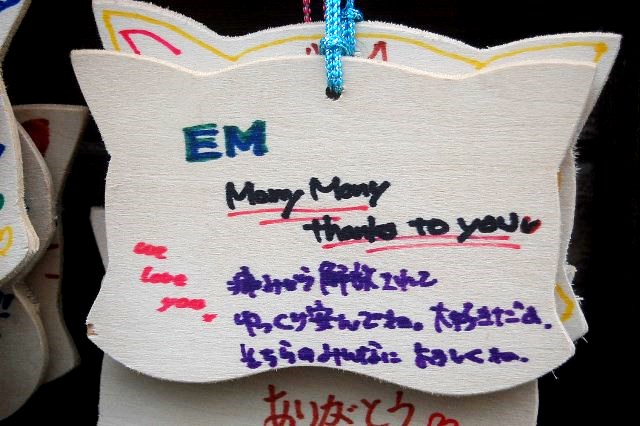 EM
Many Many
thanks to you
we
love
you.
痛みから解放されて
ゆっくり安んでね。大好きだよ。
そちらのみんなに よろしくね。
ありがとう